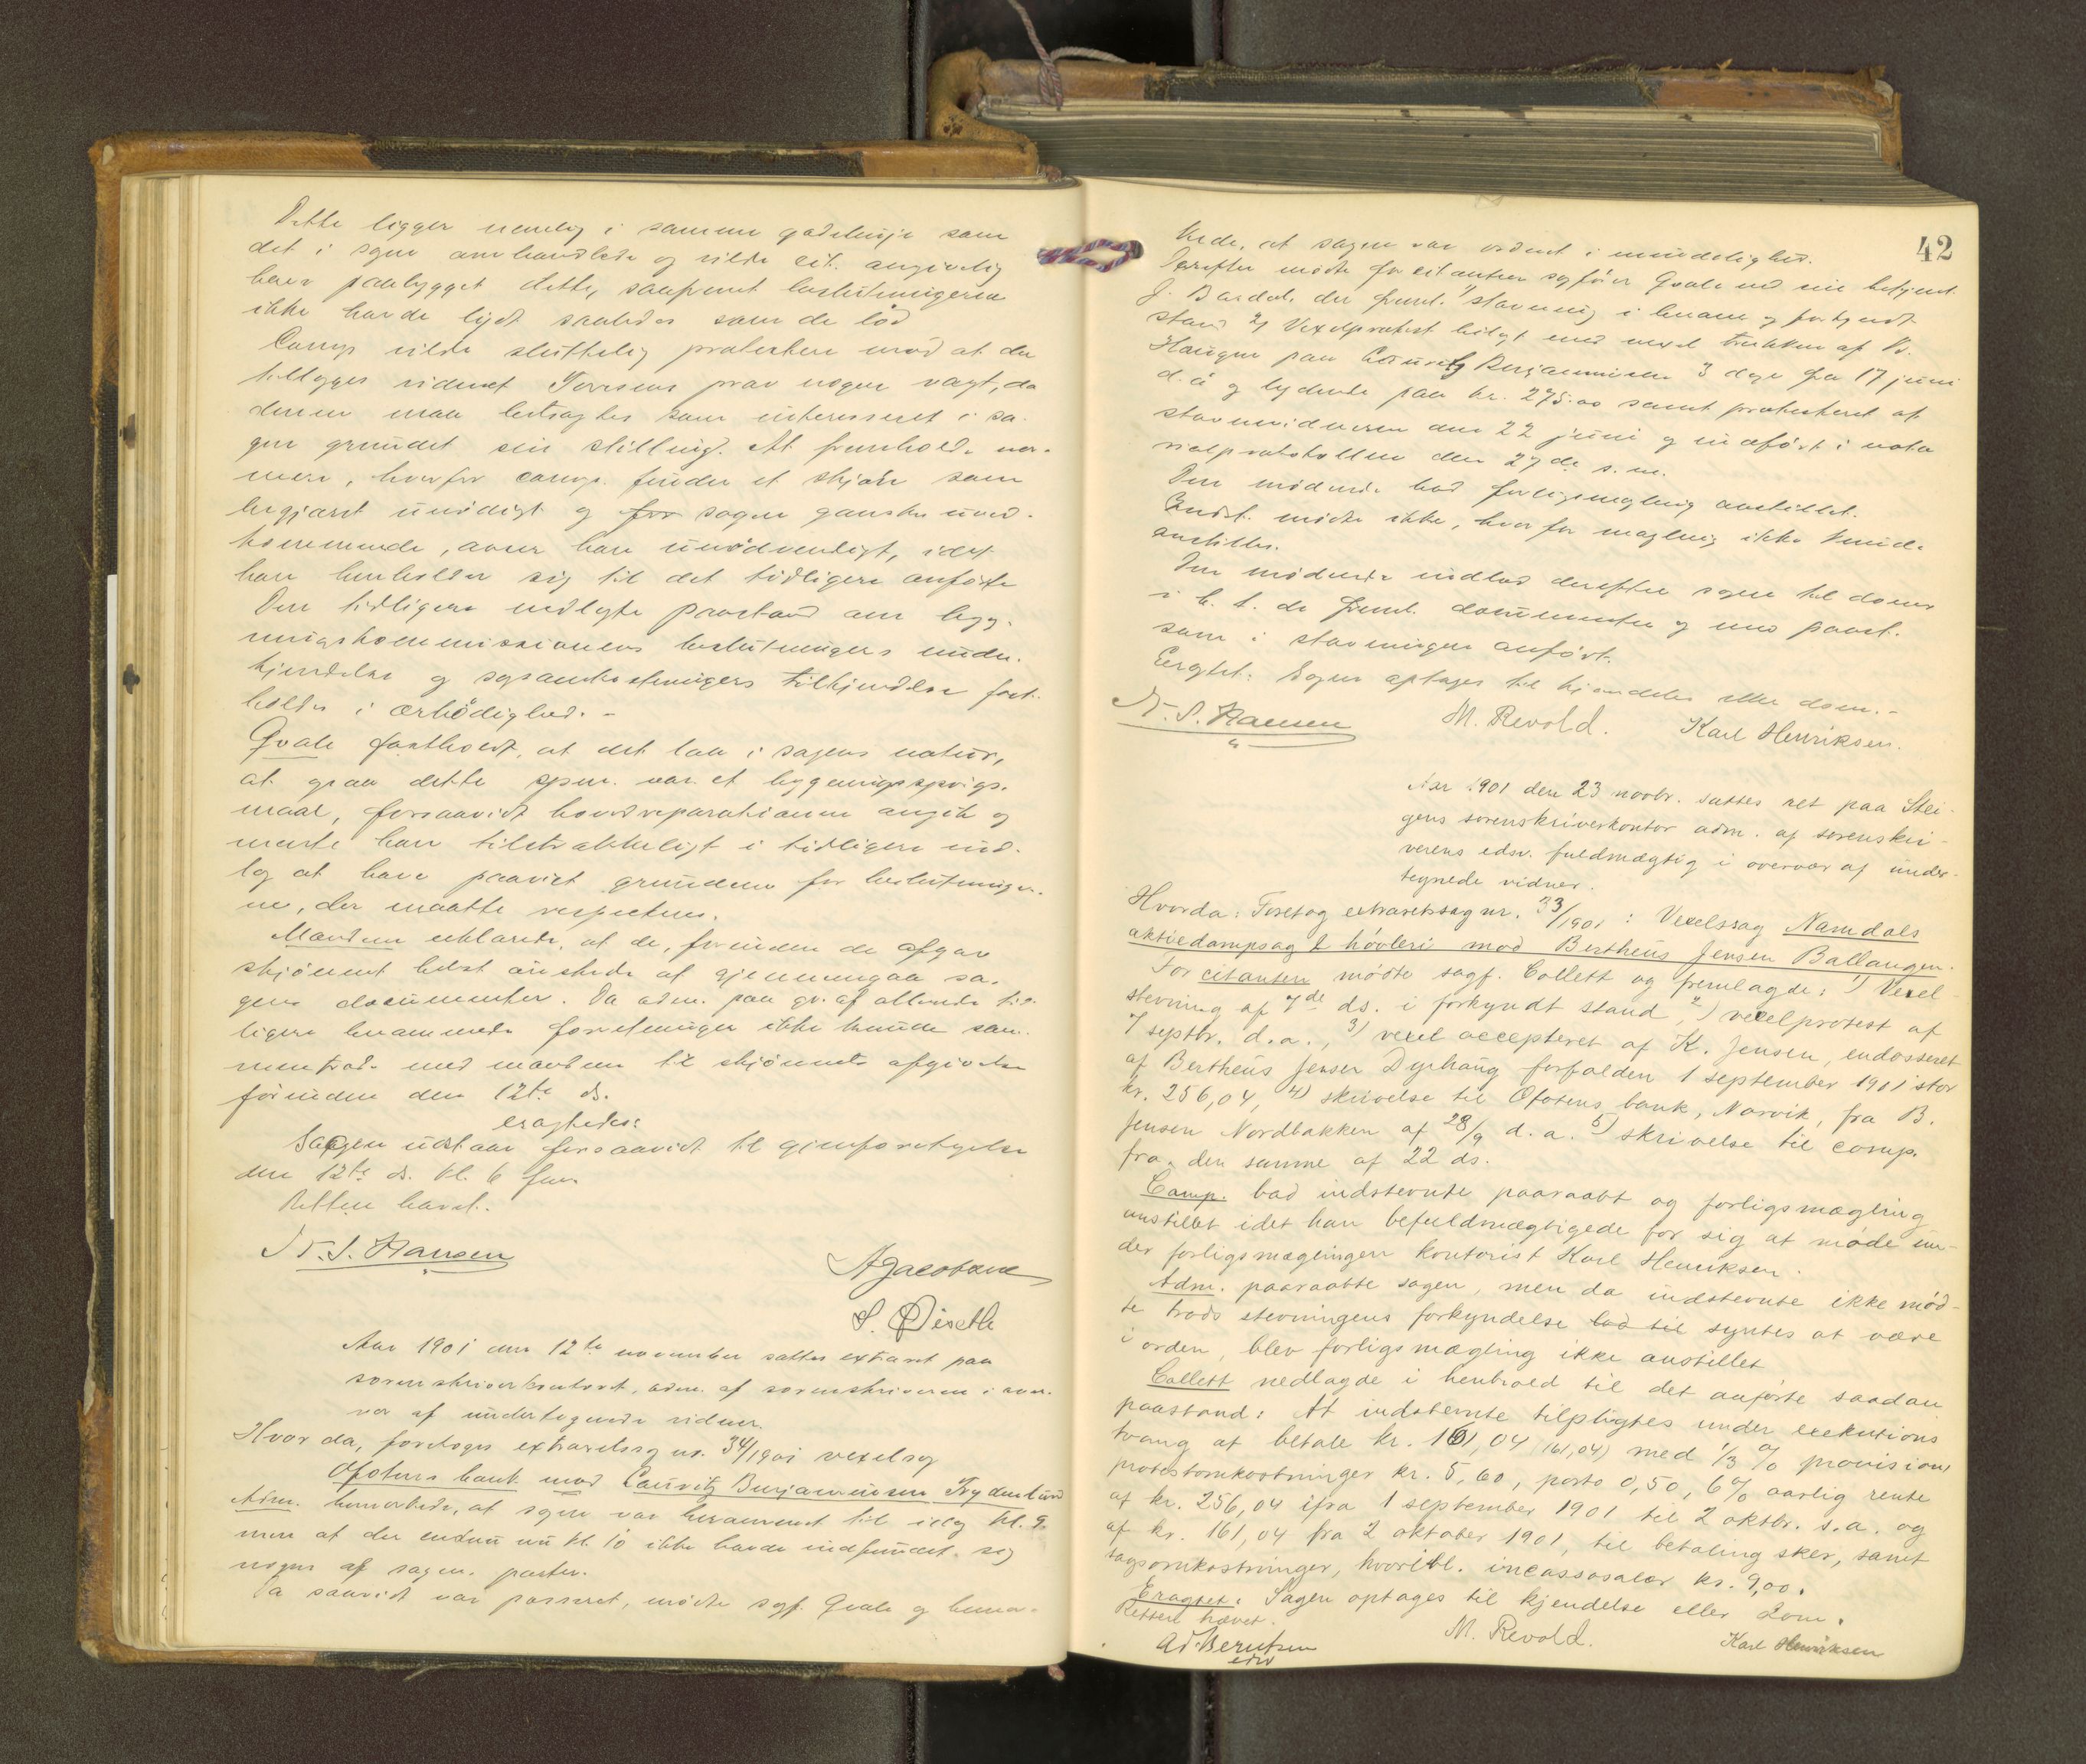 Dette ligger nemlig i samme gadelinje som
det i sagen omhandlede og vilde cit. angivelig
have paabygget dette, saafremt beslutningerne
ikke havde lydt saaledes som de lød
Comp vilde sluttelig protestere mod at der
tillægges vidnet Toresens prov nogen vægt, da
denne maa betragtes som interesseret i sa-
gen grundet sin stilling. At fremholde nær-
mere, hvorfor comp. finder et skjøn som
begjært unødigt og for sagen ganske uved-
kommende, anser han unødvendigt, idet
han henholder sig til det tidligere anførte
Den tidligere nedlagte paastand om byg-
ningskommissionens beslutningers under-
kjendelse og sagsomkostningers tilkjendelse fast-
holdes i ærbødighed. -
Qvale fastholdt, at det laa i sagens natur,
at graa dette spm. var et bygningsspørgs-
maal, forsaavidt hovedreparationen angik og
mente han tilstrækkeligt i tidligere ind-
læg at have paavist grundene for beslutninger-
ne, der maatte respecteres.
Mændene erklærede, at de, forinden de afgav
skjønnet helst ønskede at gjennemgaa sa-
gens documenter. Da adm. paa gr. af allerede tid-
ligere berammede forretninger ikke kunde sam-
mentræde med mændene til skjønnets afgivelse
forinden den 12te ds.
eragtedes:
Sagen udstaar forsaavidt til gjenforetagelse
den 12te ds. kl. 6 fm.
Retten hævet.
N. S. Hansen
A Jacobsen
S.
Aar 1901 den 12te november sattes extraret paa
sorenskriverkontoret, adm. af sorenskriveren i over-
vær af undertegnede vidner.
Hvor da, foretoges extraretssag nr. 34/1901 vexelsag
Ofotens bank mod Lauritz Benjaminsen Frydenlund
Adm. bemærkede, at sagen var berammet til idag kl. 9
men at der endnu nu kl. 10 ikke havde indfundet sig
nogen af sagens parter.
Da saavidt var passeret, mødte sagf. Qvale og bemær-
42
kede, at sagen var ordnet i mindelighed.
Derefter mødte for citanten sagfører Qvale ved sin betjent
J. Bardal, der freml. 1) stævning i beram. og forkyndt
stand 2) Vexelprotest bilagt med vexel trukken af B.
Haugen paa Lauritz Benjaminsen 3 dage fra 17 juni
d.å og lydende paa kr. 275.00 samt protesteret af
stævnevidnerne den 22 juni og indført i nota
rialprotokollen den 27de s.m.
Den mødende bad forligsmægling anstillet.
Indst. mødte ikke, hvorfor mægling ikke kunde
anstilles.
Den mødende indlod derefter sagen til doms
i h. t. de freml. documenter og med paast.
som i stævningen anført.
Eragtet: Sagen optages til kjendelse eller dom. -
N. S. Hansen M. Revold. Karl Henriksen.
Aar 1901 den 23 novbr. sattes ret paa Stei-
gens sorenskriverkontor adm. af sorenskri-
verens edsv. fuldmægtig i overvær af under-
tegnede vidner.
Hvorda: Foretog extraretssag nr. 33/1901 : Vexelssag Namdals
aktiedampsag & høvleri mod Bertheus Jensen Ballangen.
For citanten mødte sagf. Collett og fremlagde: 1) Vexel
stevning af 7de ds. i forkyndt stand, 2) vexelprotest af
7 septbr. d.a., 3) vexel accepteret af K. Jensen, endosseret
af Bertheus Jensen Dyrhaug forfalden 1 september 1901 stor
kr. 256,04, 4) skrivelse til Ofotens bank, Narvik, fra B.
Jensen Nordbakken af 28/9 d.a. 5) skrivelse til comp.
fra den samme af 22 ds.
Comp. bad indstevnte paaraabt og forligsmægling
anstillet idet han befuldmægtigede for sig at møde un-
der forligsmæglingen kontorist Karl Henriksen.
Adm. paaraabte sagen, men da indstevnte ikke mød-
te trods stevningens forkyndelse lod til syntes at være
i orden, blev forligsmægling ikke anstillet
Collett nedlagde i henhold til det anførte saadan
paastand: At indstevnte tilpligtes under exekutions
tvang at betale kr. 161,04 (161,04) med 1/3 % provision
protestomkostninger kr. 5,60, porto 0,50, 6% aarlig rente
af kr. 256,04 ifra 1 september 1901 til 2 oktbr. s.a. og
af kr. 161,04 fra 2 oktober 1901, til betaling sker, samt
sagsomkostninger, hvoribl. incassosalær kr. 9,00.
Eragtet: Sagen optages til kjendelse eller dom.
Retten hævet.
Ad. Berntsen M. Revold. Karl Henriksen
edsv